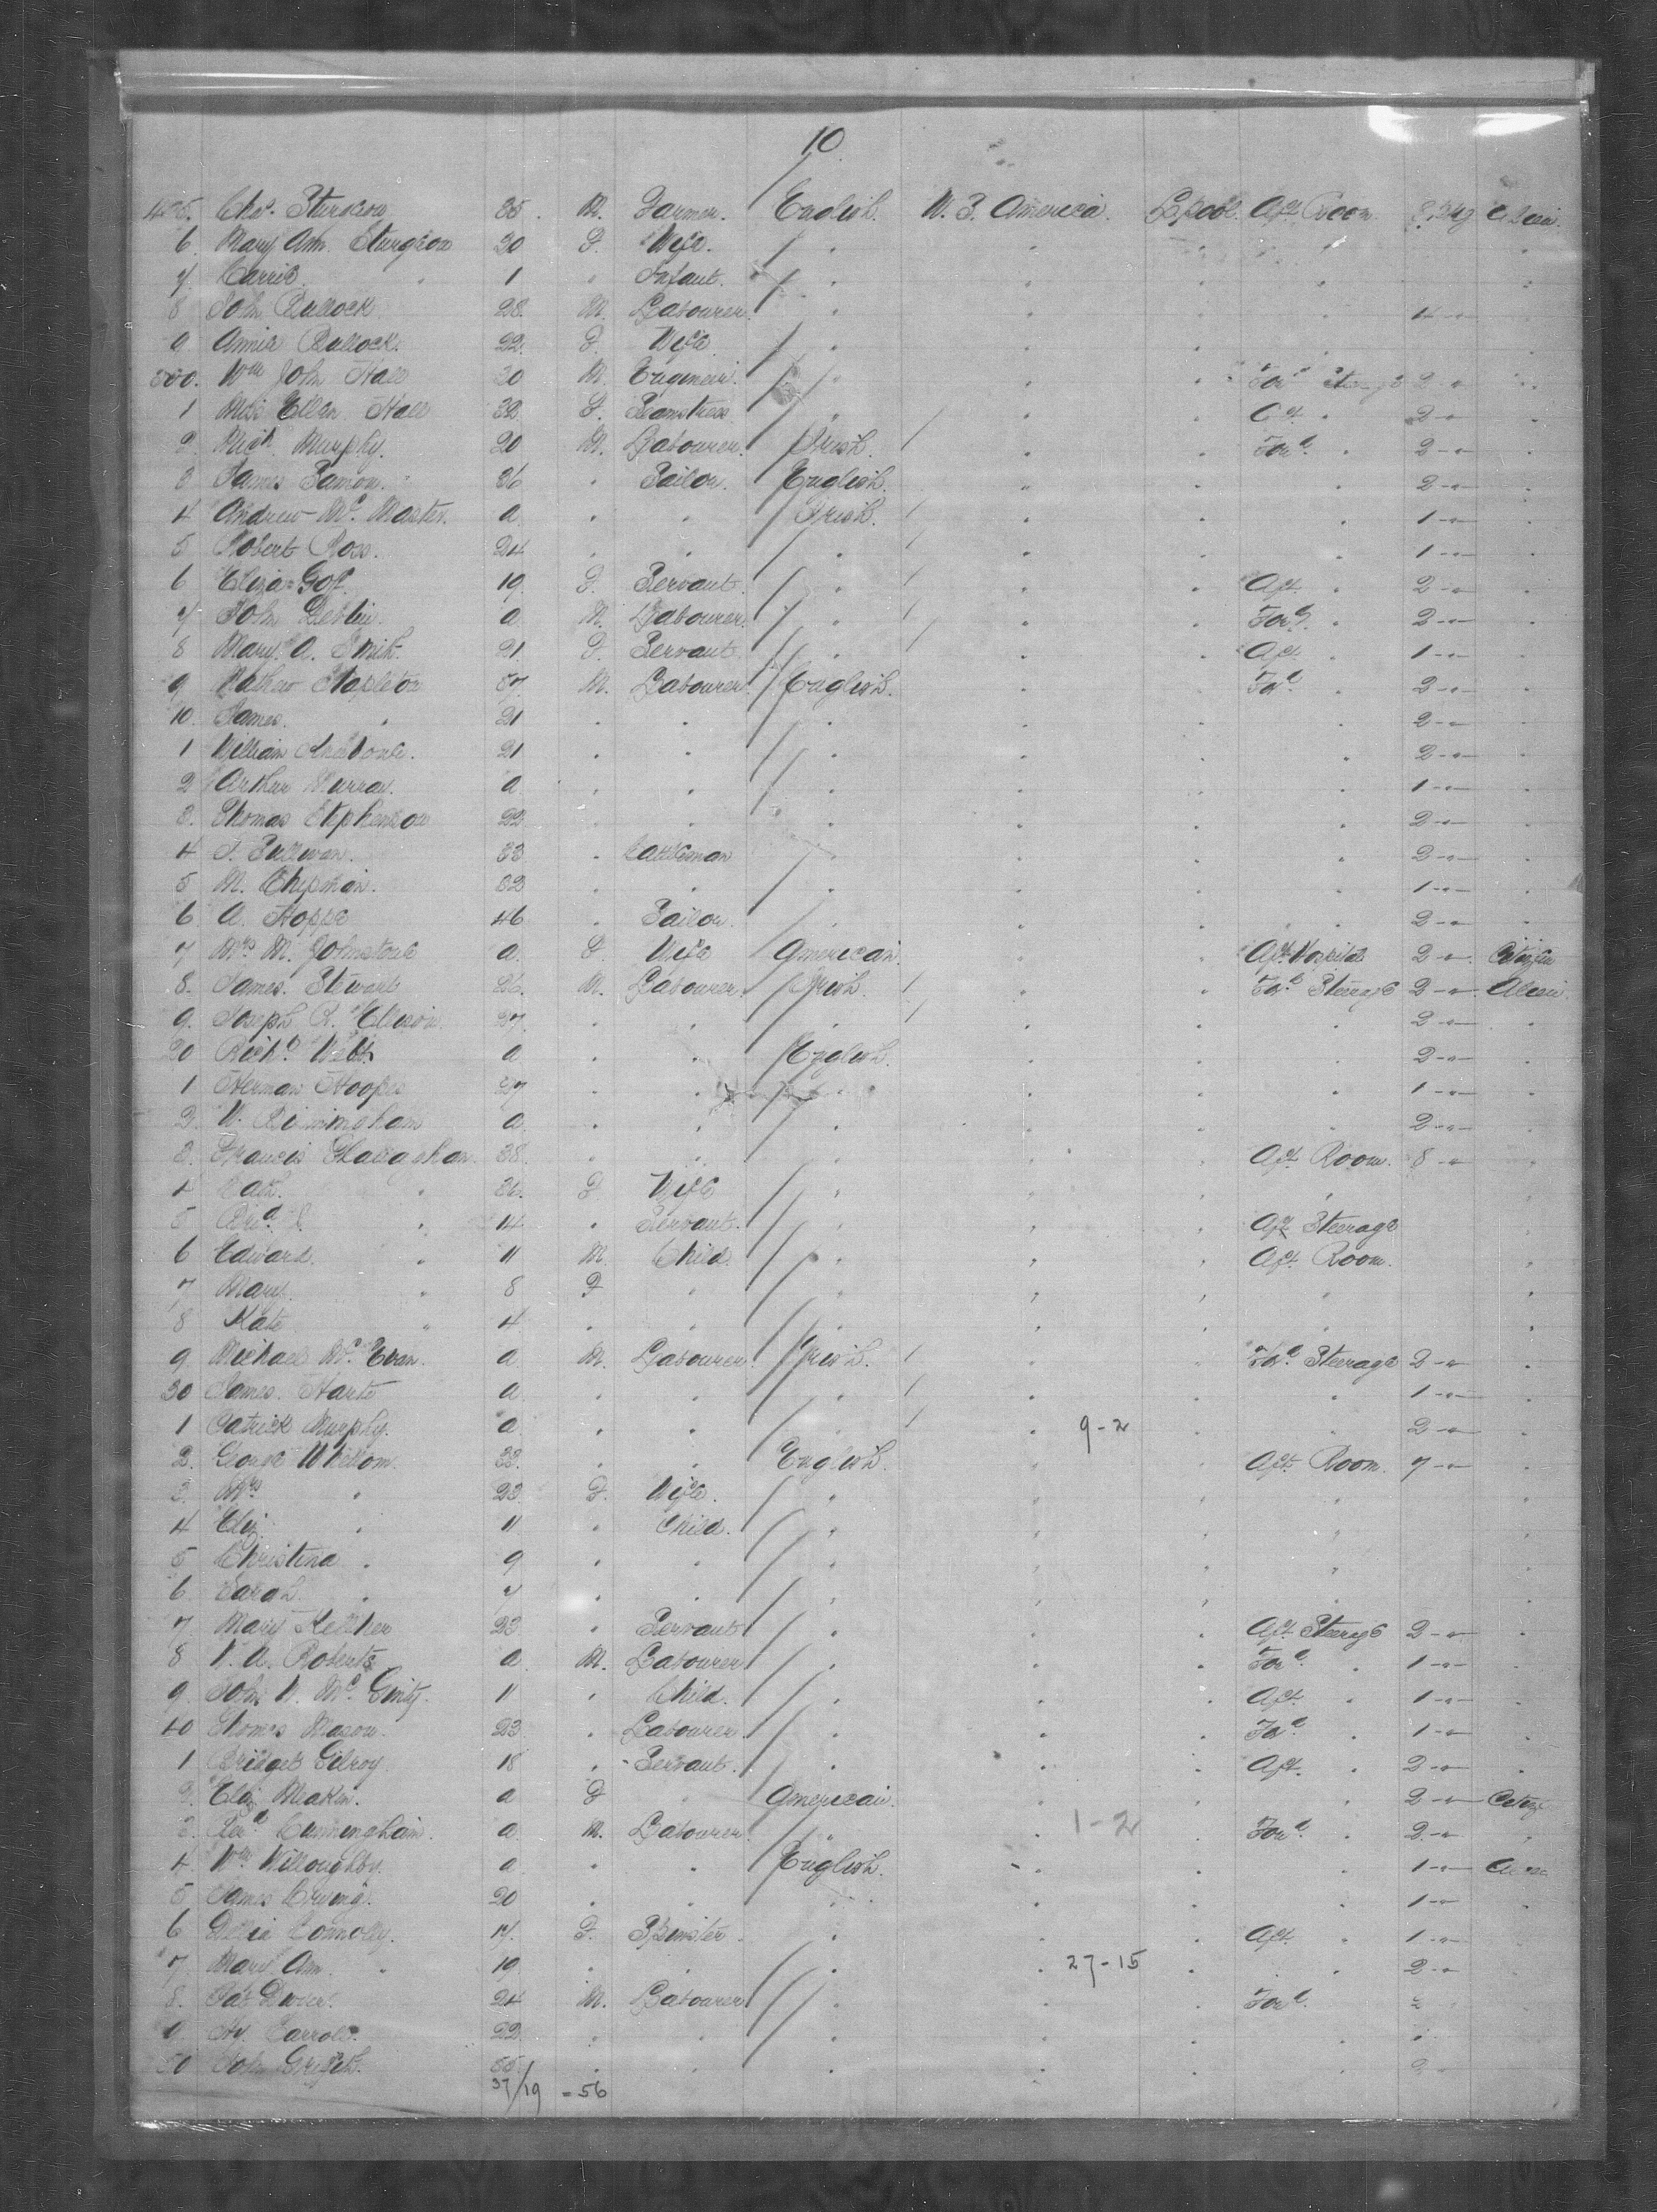 10
495. Chas. Sturgeon 35. M. Farmer. English. U. S. America. L'pool. Aft Room. Alien.
6 Mary Ann. Sturgeon 30 F. Wife. " " "
7. Carrie. " 1 " Infant. " " "
8 John Bullock 28. M. Labourer. " " " 4 - " -
9 Annie Bullock. 22. F. Wife. " " "
500. Wm John Hall 30 M. Engineer. " " " For'd Steerage 2 - "
1 Mrs Ellen Hall 32 F. Seamstress. " " Aft " 2 - " -
2. Mich. Murphy. 20 M. Labourer. Irish. " " For'd " 2 - " -
3 James 36 " Sailor. English. " " " 2 - " -
4 Andrew Mc. Master. a " " Irish. " " " 1 - " -
5 Robert Ross. 24 " " " " " " 1 - " -
6 Eliza Goff. 19. F. Servant. " " Aft. " 2 - " -
7 John Devlin. a M. Labourer. " " " For'd. " 2 - " -
8 Mary. A. Smith. 21. F. Servant " " " Aft " 1 - " -
9 Mathew Stapleton 57. M. Labourer. English. " " For'd. 2 - " -
10. James. " 21 " " " " " " 2 - " -
1 William 21 " " " " " " 2 - " -
2 Arthur Murray. a " " " " " " 1 - " -
3. Thomas Stephenson 22 " " " " " " 2 - " -
4 Sullivan. 33 " Cattleman " " " " 2 - " -
5 M. Chipman. 32 " " " " " " 1 - " -
6 A. Hoppe 46 " Sailor. " " " " 2 - " -
7 Mrs M. Johnstone a. F. Wife American. " " Aft Hospital 2 - " Citizen
8. James. Stewart 26. M. Labourer. Irish. " " For'd Steerage 2 - " - Alien.
9. Joseph R. 27. " " " " " " 2 - " -
20 Rich'd. Webb a " " English. " " " 2 - " -
1 Herman Hooper 27 " " " " " " 1 - " -
2. W. Birmingham a. " " " " " " 2 - " -
3. Francis 38. " " " " " Aft Room. 8 - "
4 Cath. " 36. F. Wife " " " "
5 " 14 " Servant. " " " Aft Steerage
6 Edward. " 11 M. Child. " " " Aft. Room.
7 Mary. " 8 F " " " " "
8 Kate " 4. " " " " " "
9 Michael Mc. a. M. Labourer Irish. " " For'd Steerage 2 - " -
30 James. Harte a. " " " " " " 1 - " -
1 Patrick Murphy. a. " " " " 9-2 " " 2 - " -
2. George Whillom. 33. " " English. " " Aft. Room. 7 - "
3. Mrs " 23. F. Wife. " " " "
4 Eliz. " 11 " Child. " " " "
5 Christina " 9 " " " " " "
6 Sarah " 7 " " " " " "
7 Mary Kelliher 23. " Servant " " " Aft Steerage 2 - " -
8 W. A. Roberts a. M. Labourer " " " For'd. " 1 - " -
9. John W. Mc. Ginity. 11 " Child. " " " Aft. " 1 - " -
40 Thomas Mason. 23. " Labourer " " " For'd. " 1 - " -
1 Bridget Gilroy 18 " Servant. " " " Aft. " 2 - " -
2. Meakin. a F " American. " " " 2 - " -
3. Cunningham. a. M. Labourer " " 1-2 " For'd. " 2 - "
4. Wm Willoughby. a " " English. " " " 1 - " -
5 James 20 " " " " " " 1 - " -
6 Delia Connolly. 17. F. Spinster " " " Aft. " 1 - " -
7. Mary Ann. " 19 " " " " 27-15 " " 2 - "
8. 24 M. Labourer " " " For'd. 2
9. Hy. Carroll. 22. " " " " " "
50 John Griffith. 55. " " " " " " 2
37/19 = 56